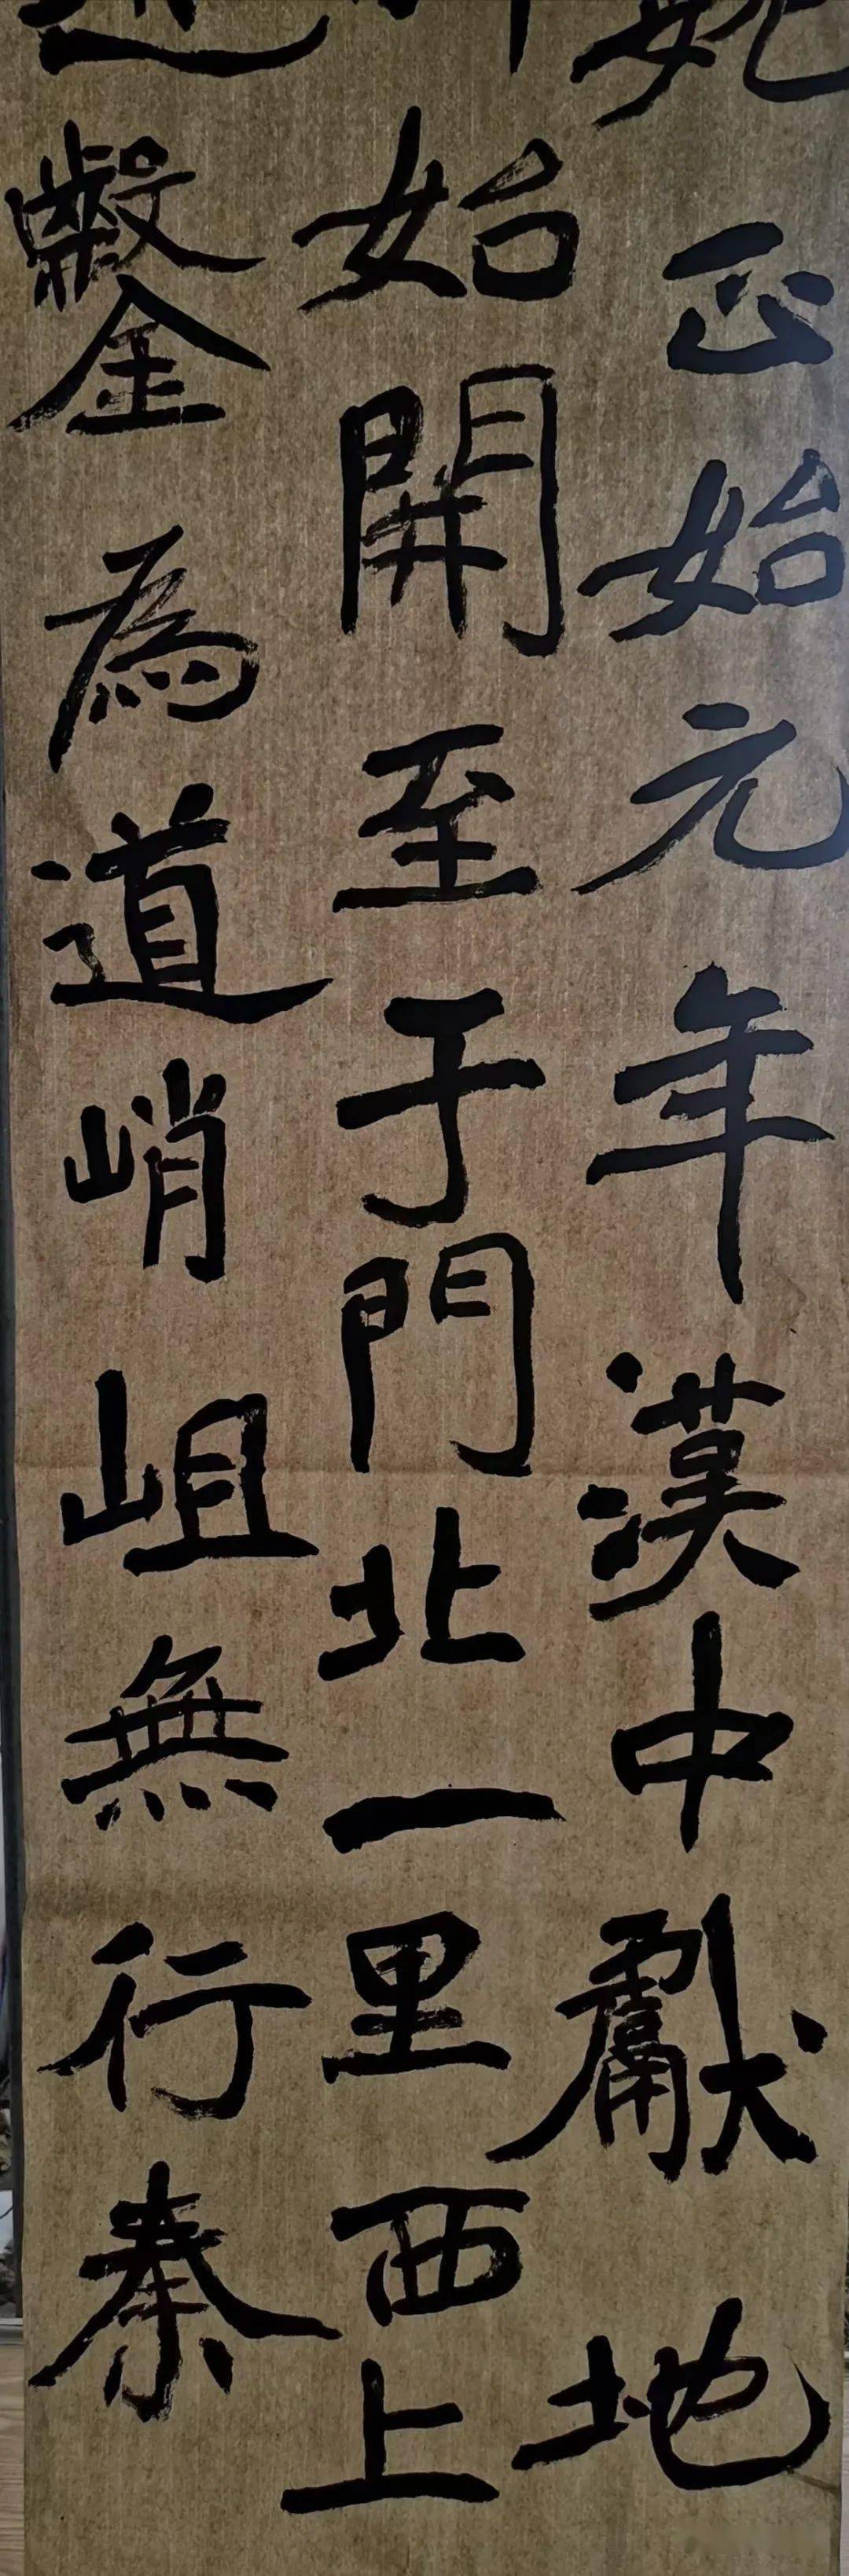 正始元年漢中獻地
始開至于門北一里西上
鑿為道峭岨無行秦